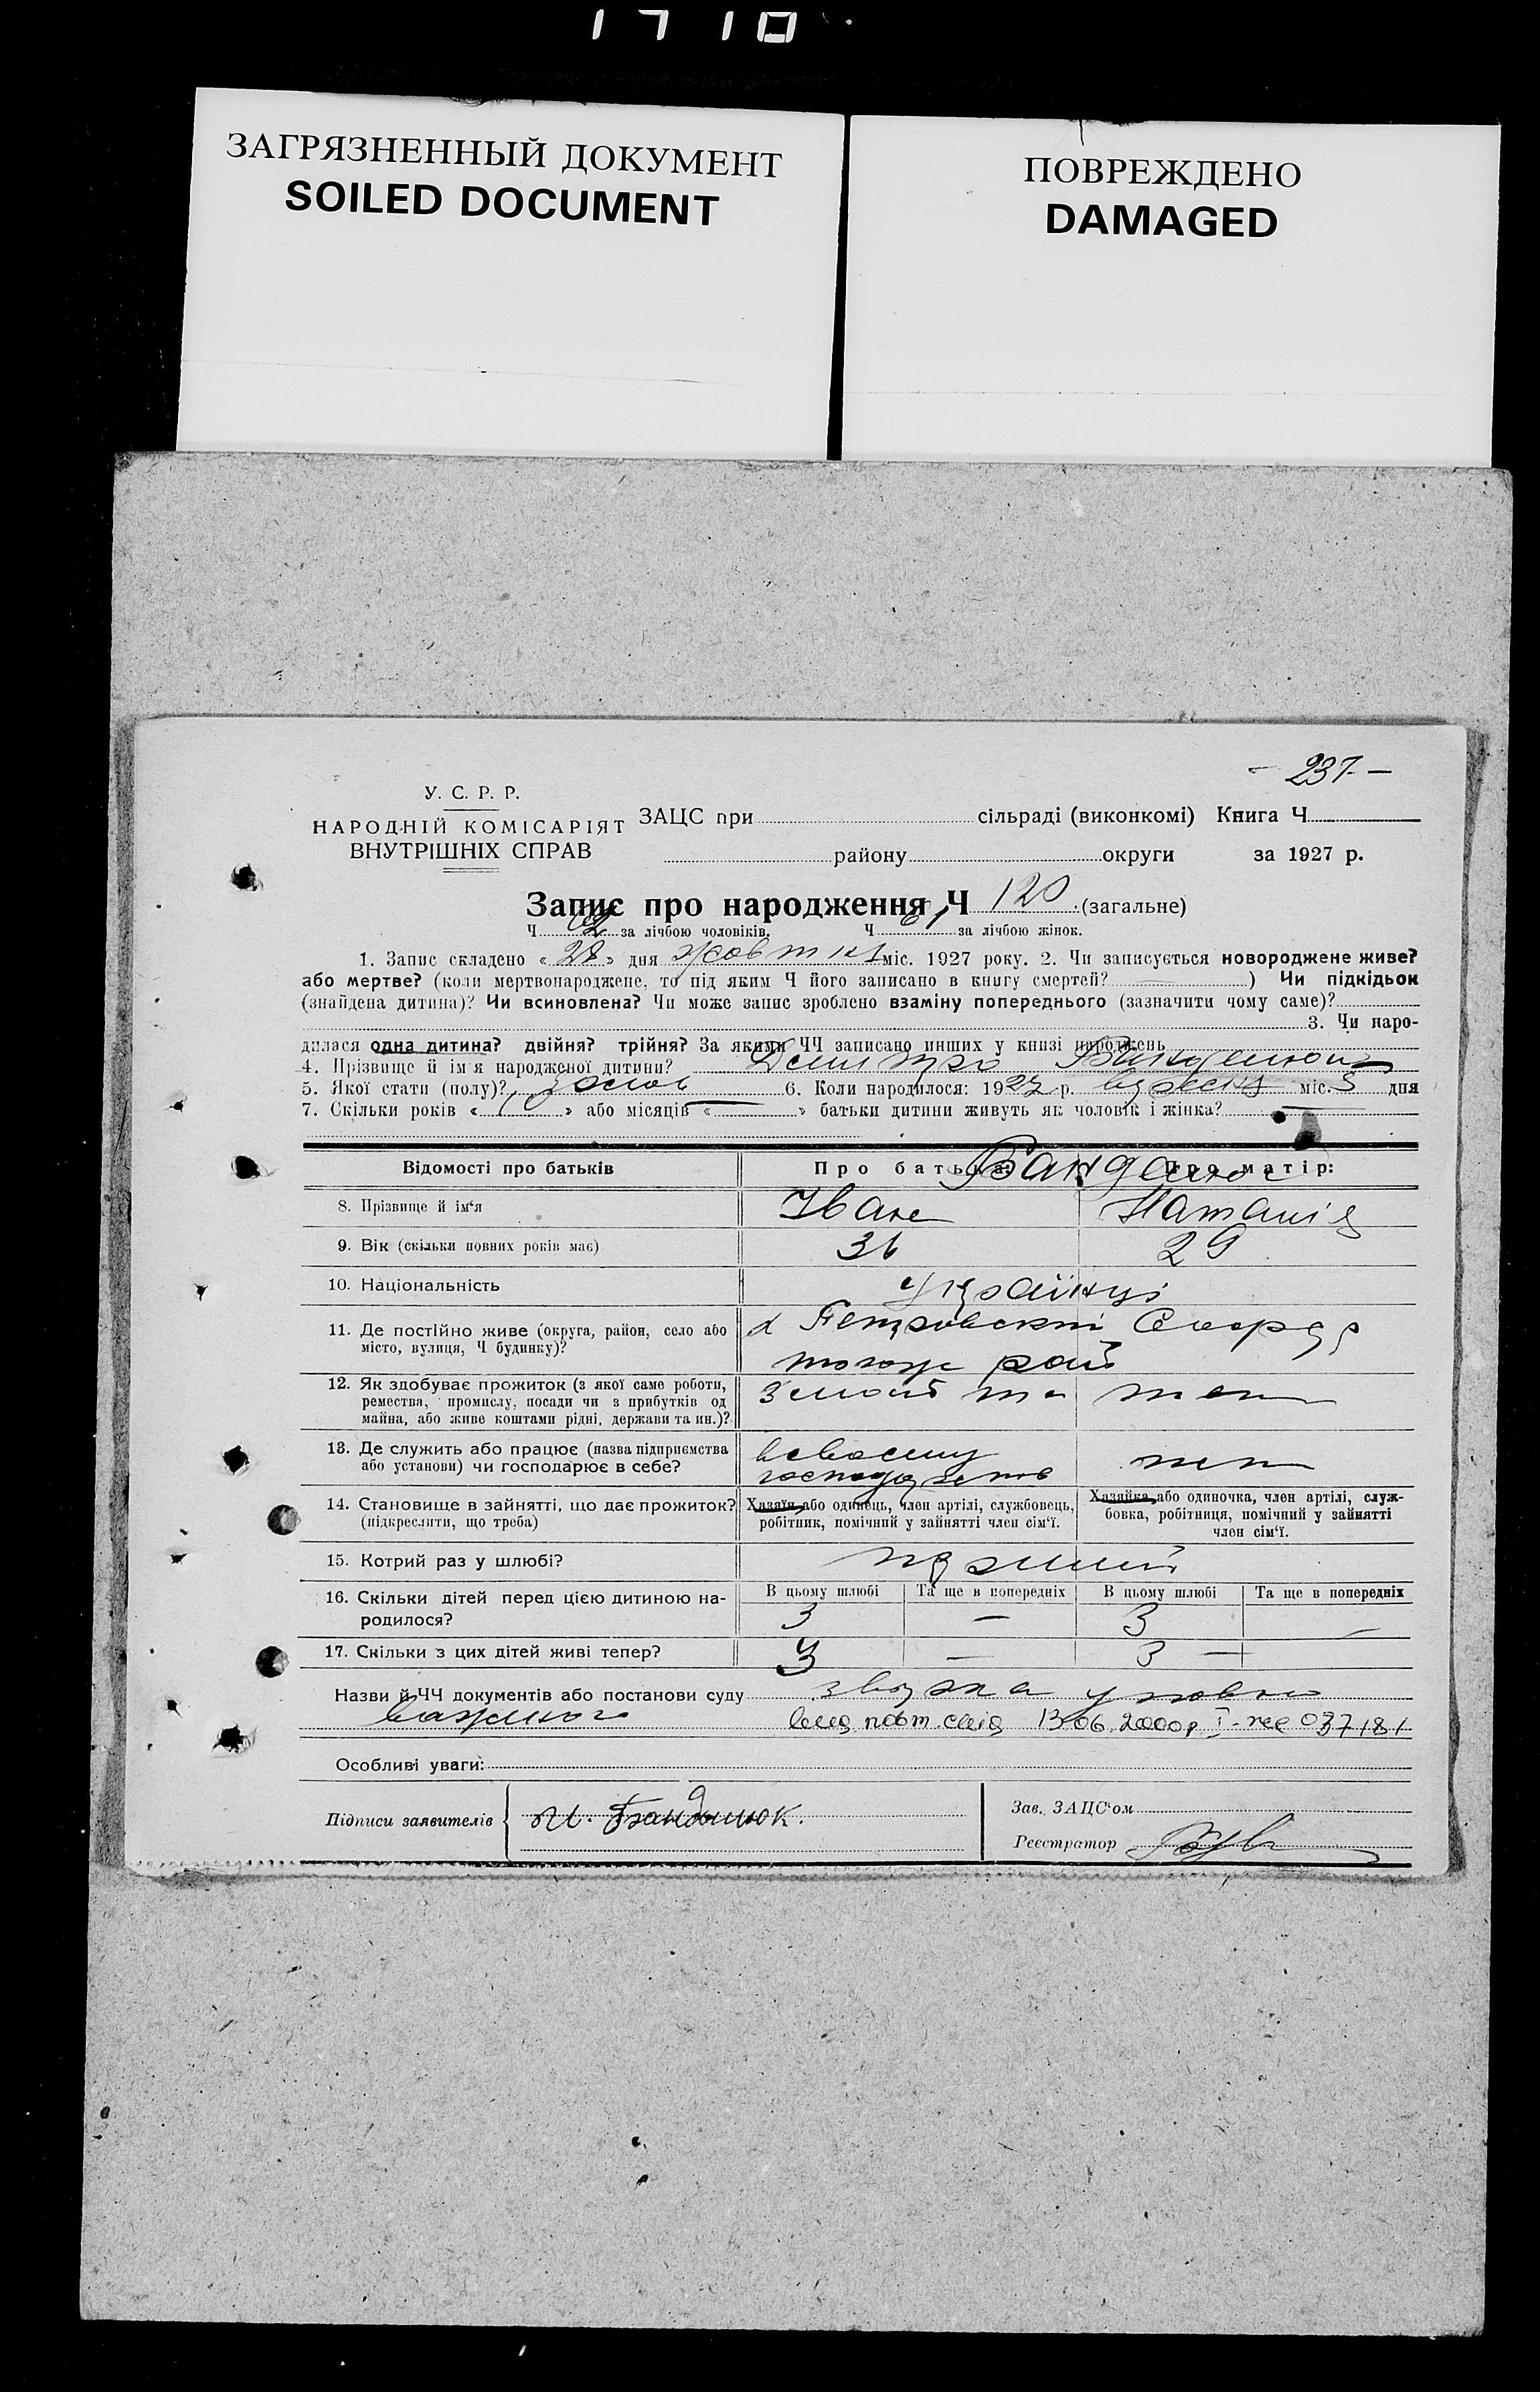 1710
ЗАГРЯЗНЕННЫЙ ДОКУМЕНТ
SOILED DOCUMENT
ПОВРЕЖДЕНО
DAMAGED
- 237 -
У. С. Р. Р.
НАРОДНІЙ КОМІСАРІЯТ
ВНУТРІШНІХ СПРАВ
ЗАЦС при сільраді (виконкомі) Книга Ч
району округи за 1927 р.
Запис про народження Ч 120 (загальне)
Ч за лічбою чоловіків. Ч 61 за лічбою жінок.
1. Запис складено « 28 » дня жовтня міс. 1927 року. 2. Чи записується новороджене живе?
або мертве? (коли мертвонароджене, то під яким Ч його записано в книгу смертей? ) Чи підкідьок
(знайдена дитина)? Чи всиновлена? Чи може запис зроблено взаміну попереднього (зазначити чому саме)?
3. Чи наро-
дилася одна дитина? двійня? трійня? За якими ЧЧ записано инших у книзі народжень
4. Прізвище й ім'я народженої дитини? Дмитро Бандалюк
5. Якої стати (полу)? 6. Коли народилося: 1927 р. вересня міс. 5 дня
7. Скільки років « » або місяців « » батьки дитини живуть як чоловік і жінка?
Відомості про батьків
Про батька: Про матір:
8. Прізвище й ім'я Іван Наталія
9. Вік (скільки повних років має) 36 29
10. Національність Українці
11. Де постійно живе (округа, район, село або
місто, вулиця, Ч будинку)?
тогож рай
12. Як здобуває прожиток (з якої саме роботи,
ремества, промислу, посади чи з прибутків од
майна, або живе коштами рідні, держави та ин.)?
13. Де служить або працює (назва підприємства
або установи) чи господарює в себе?
14. Становище в зайнятті, що дає прожиток?
(підкреслити, що треба)
Хазяїн або одинець, член артілі, службовець,
робітник, помічний у зайнятті член сім'ї.
Хазяйка або одиночка, член артілі, служ-
бовка, робітниця, помічний у зайнятті
член сім'ї.
15. Котрий раз у шлюбі? перший
В цьому шлюбі Та ще в попередніх В цьому шлюбі Та ще в попередніх
16. Скільки дітей перед цією дитиною на-
родилося? 3 — 3 —
17. Скільки з цих дітей живі тепер? 3 — 3 —
Назви й ЧЧ документів або постанови суду
13.06.2000р І-же 037181
Особливі уваги:
Підписи заявителів И. Бандылюк.
Зав. ЗАЦС'ом
Реєстратор